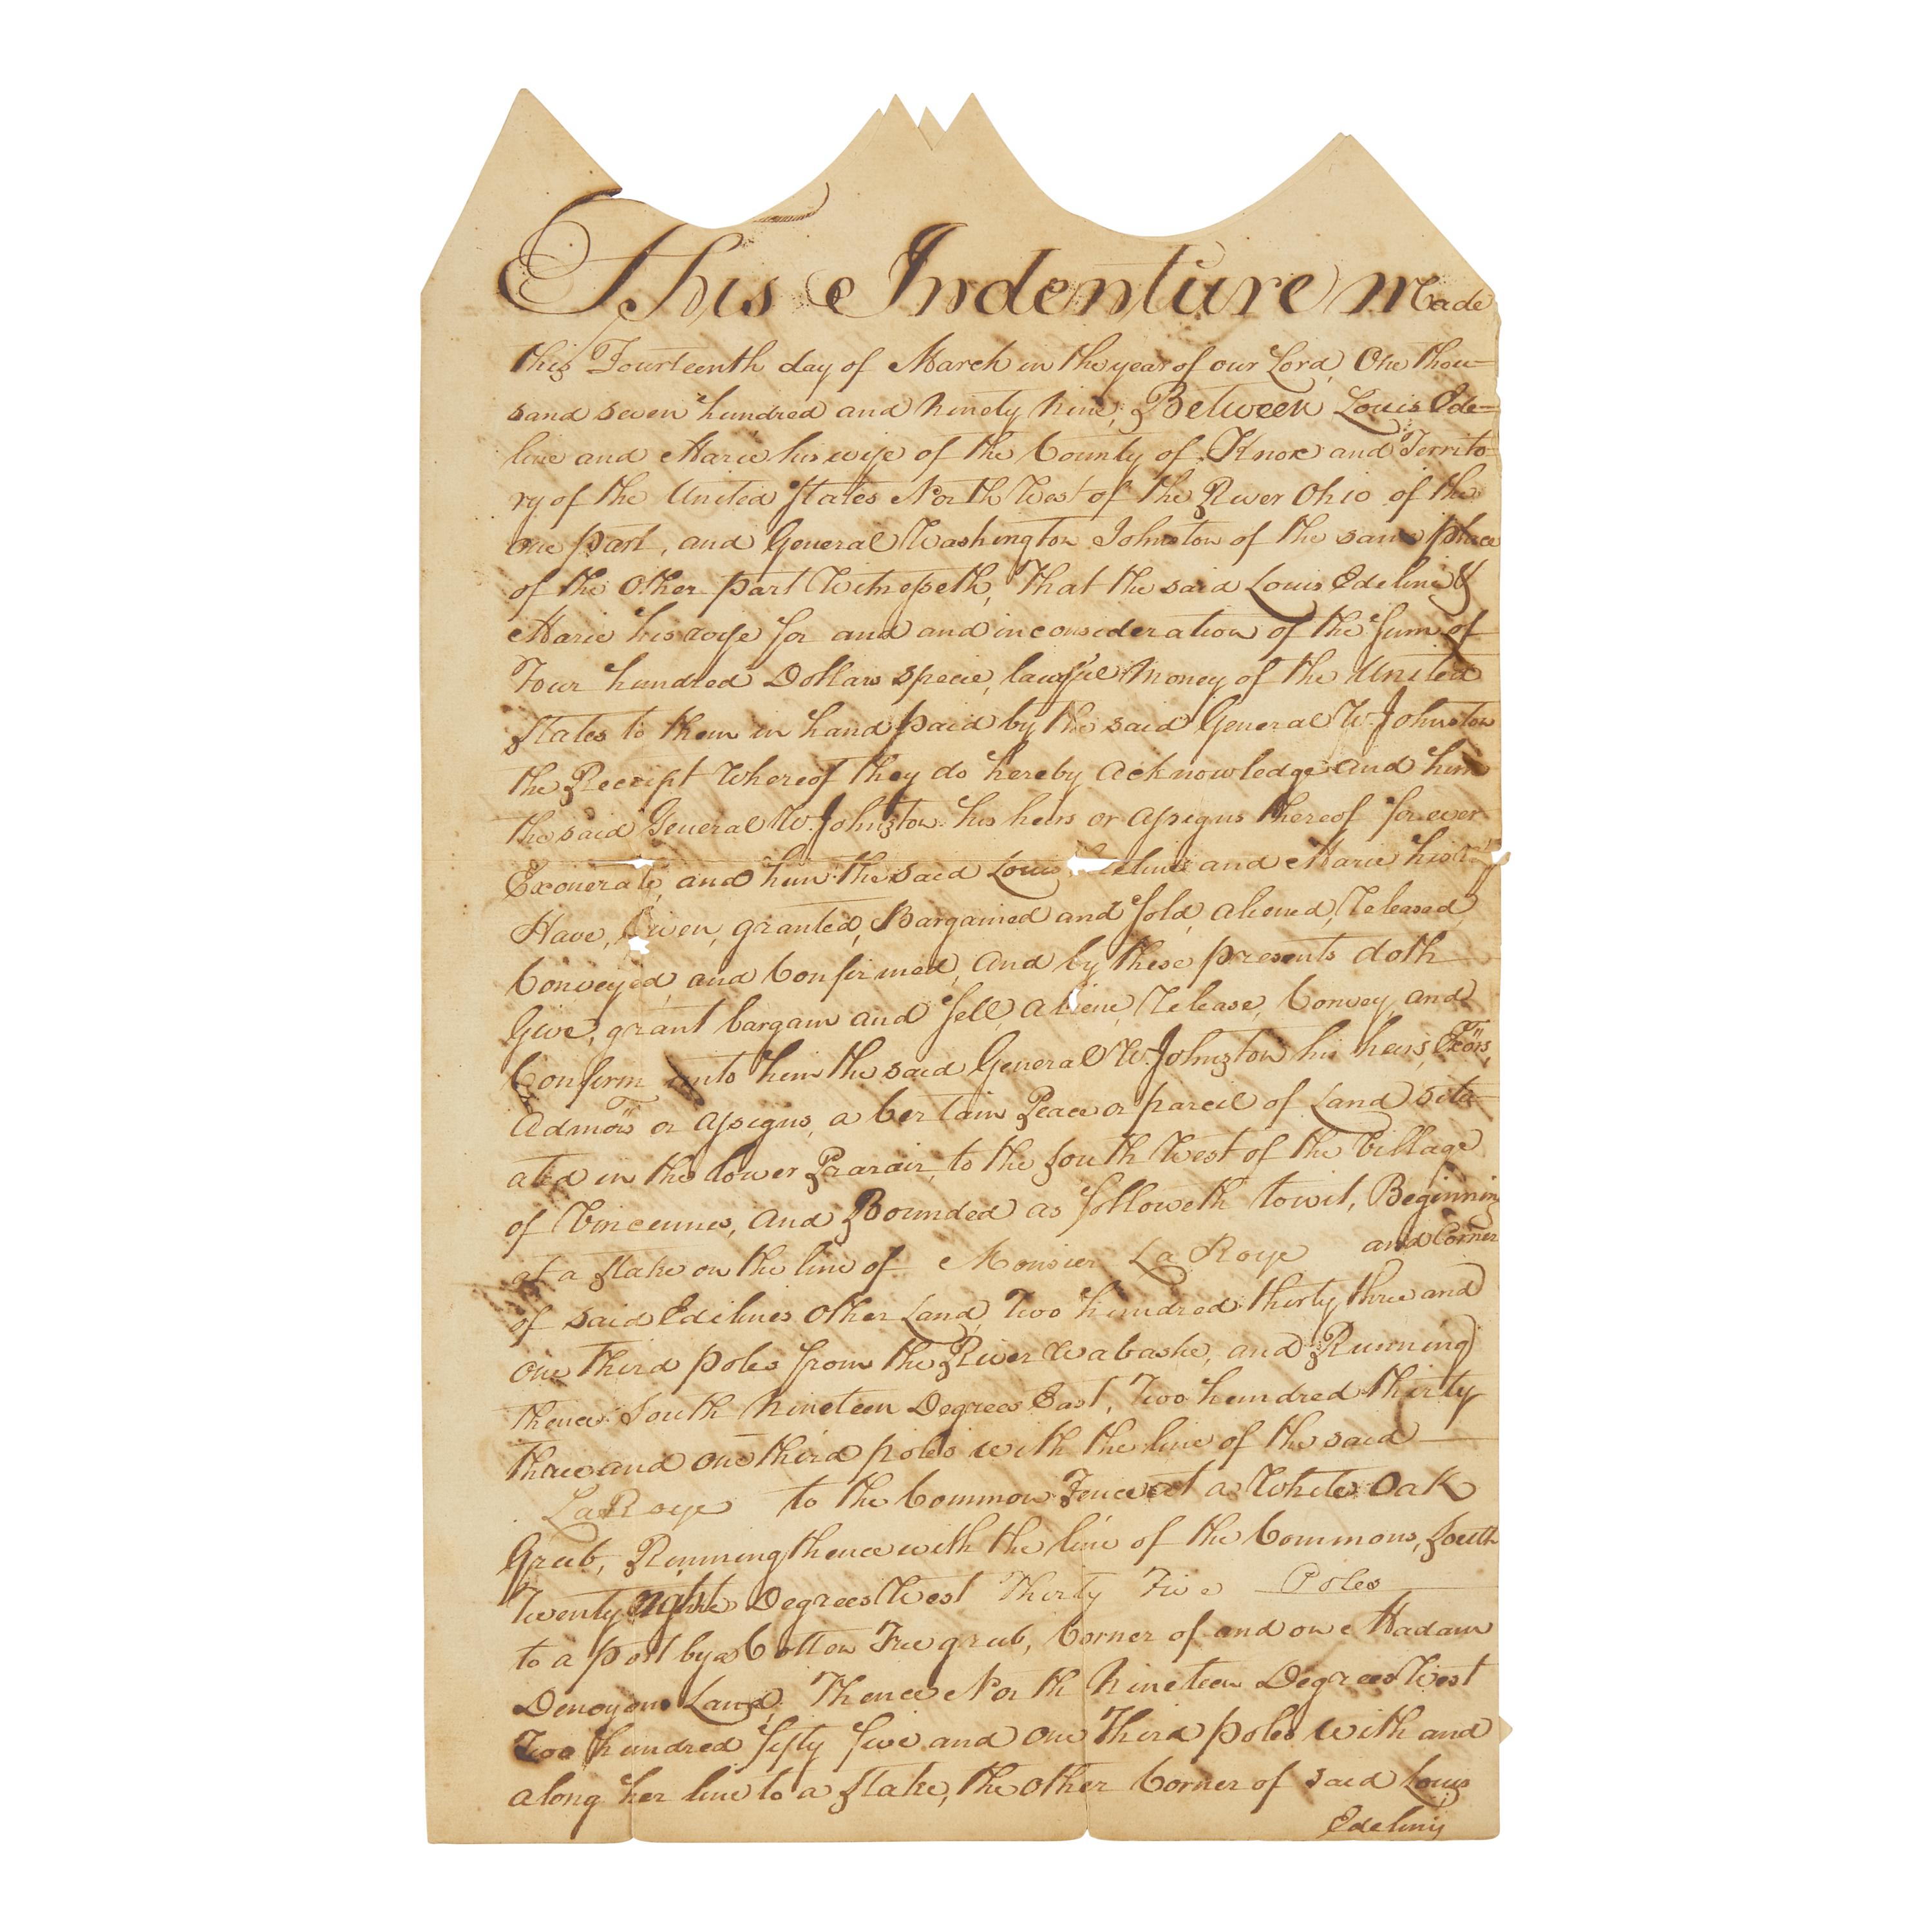 This Indenture Made
this Fourteenth day of March in the year of our Lord, One thou-
sand seven hundred and ninety nine, Between Louis Ede-
line and Marie his wife of the County of Knox and Territo
ry of the United States North West of the River Ohio of the
one part, and General Washington Johnston of the same place
of the Other part Witnesseth, That the said Louis Edeline &
Marie his wife for and and in consideration of the Sum of
Four hundred Dollars specie, lawful Money of the United
States to them in hand paid by the said General W. Johnston
the Receipt Whereof they do hereby acknowledge and him
the said General W. Johnston his heirs or assigns thereof for ever
Exonerate, and him the said Louis Edeline and Marie his
Have, Given, granted, Bargained and Sold, aliened, Released,
Conveyed, and Confirmed, And by these presents doth
Give, grant bargain and Sell, aliene, Release, Convey, and
Confirm unto him the said General W. Johnston his heirs, Exors,
Admors or assigns, a Certain Peace or parcil of Land situ-
ated in the lower Prarair, to the South West of the Village
of Vincennes, and Bounded as followeth towit, Beginning
at a Stake on the line of Monsier La Roye and Corner
of said Edelines Other Land, Two hundred thirty three and
one third poles from the River Wabashe, and Running
thence South Nineteen Degrees East, Two hundred thirty
three and one third poles with the line of the said
LaRoye to the Common Fence at a White Oak
Grub, Running thence with the line of the Commons, South
Twenty eight Degrees West Thirty Five Poles
to a post by a Cotton Tree grub, Corner of and on Madam
Denoyons Land, Thence North Nineteen Degrees West
Two hundred fifty five and one Third poles with and
along her line to a Stake, the Other Corner of said Louis
Edelins